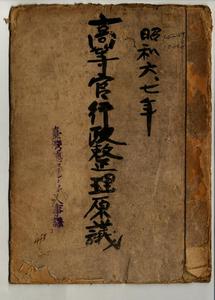 昭和六、七年
高等官行政整理原議
人事課